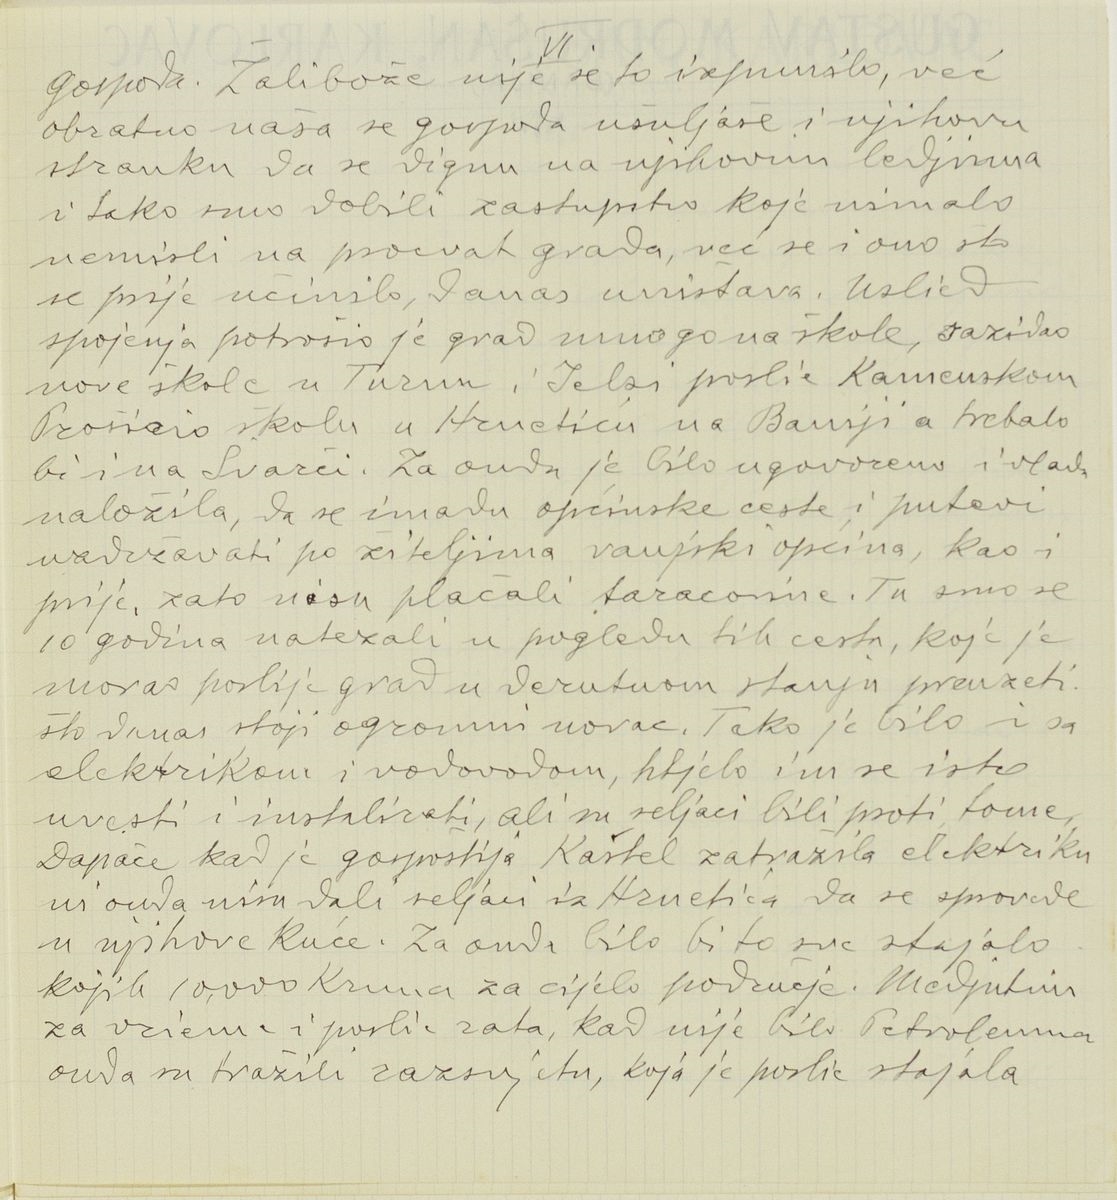 VI
gospoda. Žalibože nije se to ispunilo, već
obratno naša se gospoda ušuljaše i njihovu
stranku da se dignu na njihovim ledjima
i tako smo dobili zastupstvo koje nimalo
nemisli na procvat grada, već se i ono što
se prije učinilo, danas uništava. Uslied
spojenja potrošio je grad mnogo na škole, sazidao
nove škole u Turnu i Jelsi poslie Kamenskom
Proširio školu u Hrnetiću na Banji a trebalo
bi i na Švarči. Za onda je bilo ugovoreno i vlada
naložila, da se imadu općinske ceste i putevi
uzdržavati po žiteljima vanjski općina, kao i
prije, zato nisu plaćali taracovine. Tu smo se
10 godina natezali u pogledu tih cesta, koje je
morao poslije grad u derutnom stanju preuzeti.
što danas stoji ogromni novac. Tako je bilo i sa
elektrikom i vodovodom, htjelo im se isto
uvesti i instalirati, ali su seljaci bili proti tome,
Dapače kad je gospoštija Kaštel zatražila elektriku
ni onda nisu dali seljaci iz Hrnetića da se sprovede
u njihove kuće. Za onda bilo bi to sve stajalo
kojih 10,000 Kruna za cijelo područje. Medjutim
za vrieme i poslie rata, kad nije bilo Petroleuma
onda su tražili razsvjetu, koja je poslie stajala